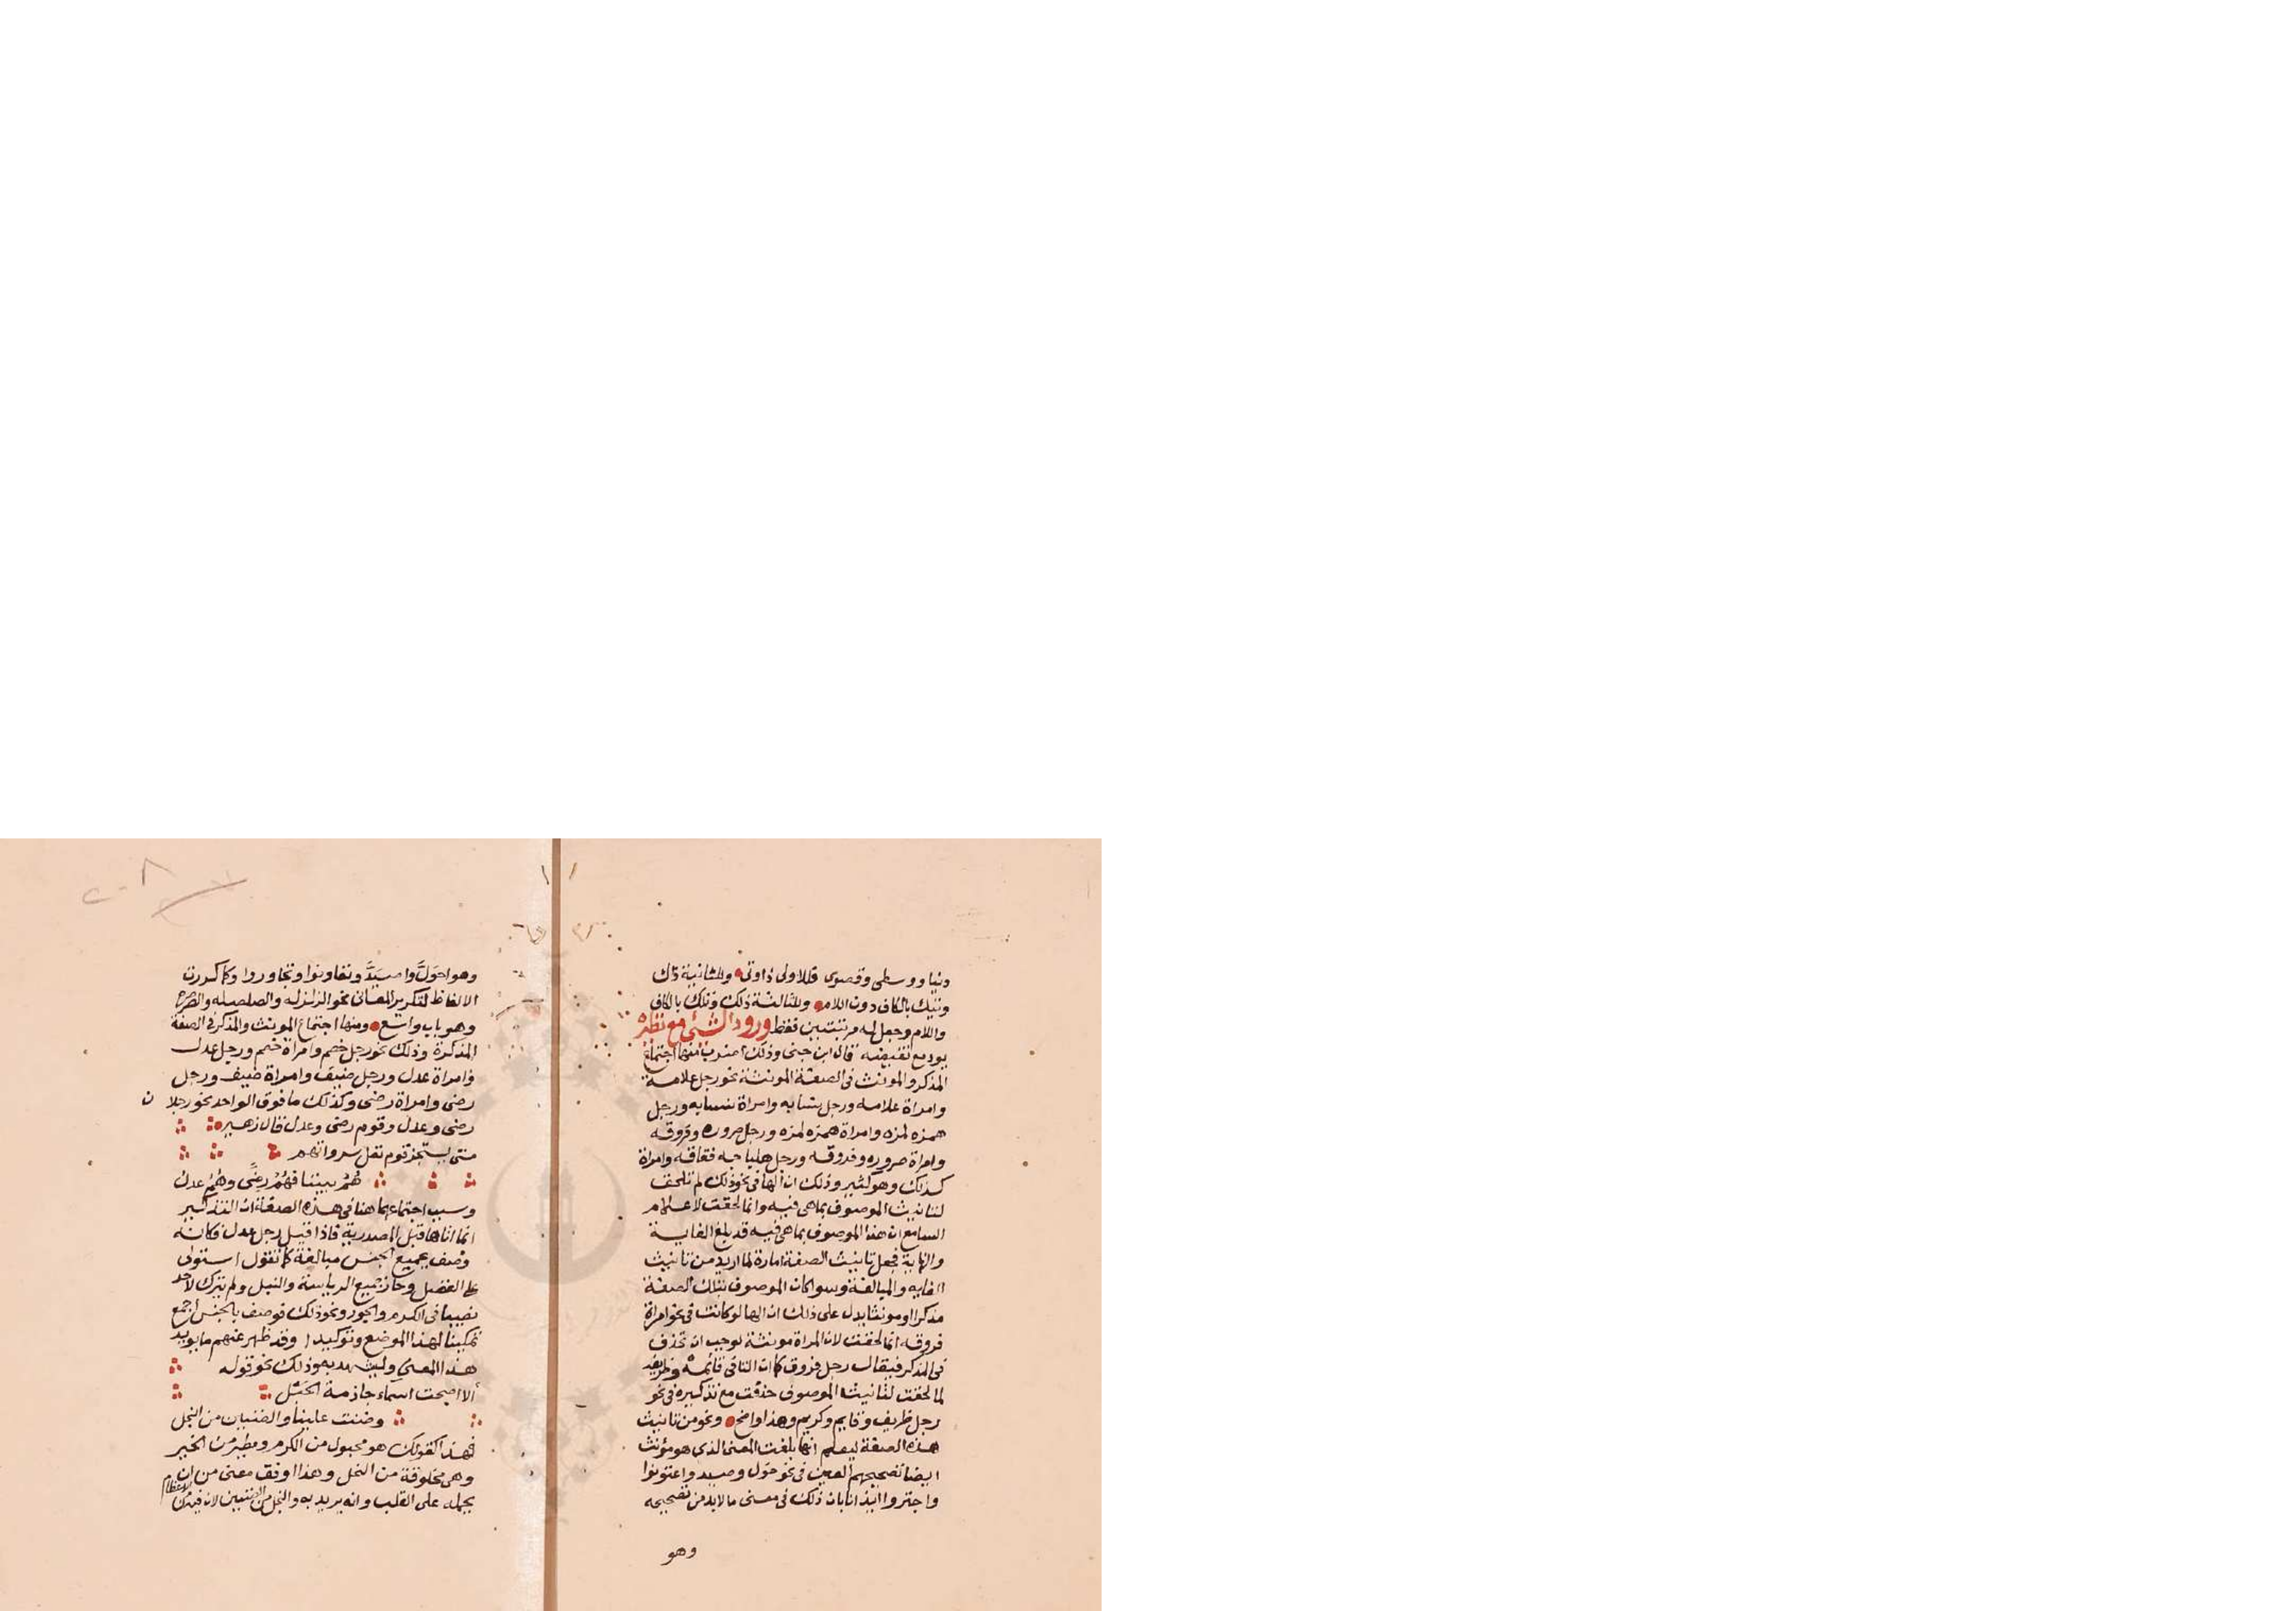 دنيا ووسطى وقصوى فللاولى ذا وتى وللثانية ذاك
وتيك بالكاف دون اللام وللثالثة ذلك وتلك بالكاف
واللام وجعل له مرتبتين فقط ورود الشئ مع نظيره
يورد مع نقيضه قال ابن جنى وذلك اضرب منها اجتماع
المذكر والمونث فى الصفة المونثة نحو رجل علامة
وامراة علامه ورجل نسابه وامراة نسابه ورجل
همزه لمزه وامراة همزه لمزه ورجل صروره وفروقه
وامراة صروره وفروقه ورجل هلباجه فقاقه وامراة
كذلك وهو كثير وذلك ان الها فى نحو ذلك لم تلحق
لتانيث الموصوف بما هى فيه وانما لحقت لاعلام
السامع ان هذا الموصوف بما هى فيه قد بلغ الغاية
والنهاية فجعل تانيث الصفة امارة لما اريد من تانيث
الغايه والمبالغة وسوا كان الموصوف بتلك الصفة
مذكرا او مونثا يدل على ذلك ان الها لو كانت فى نحو امراة
فروقه انما لحقت لان المراة مونثة لوجب ان تحذف
فى المذكر فيقال رجل فروق كما ان التا فى قائمة وظريفه
لما لحقت لتانيث الموصوف حذفت مع تذكيره فى نحو
رجل ظريف وقايم وكريم وهذا واضح ونحو من تانيث
هذه الصفة ليعلم انها بلغت المعنى الذى هو مؤنث
ايضا تصحيحهم العين فى نحو حول وصيد واعتونوا
واجتوروا ايذانا بان ذلك فى معنى ما لا بد من تصحيحه
وهو
وهو احول واصيد وتعاونوا وتجاوروا وكما كررت
الالفاظ لتكرير المعانى نحو الزلزله والصلصله والصرصره
وهو باب واسع ومنها اجتماع المونث والمذكر فى الصفة
المذكرة وذلك نحو رجل خصم وامراة خصم ورجل عدل
وامراة عدل ورجل ضيف وامراة ضيف ورجل
رضى وامراة رضى وكذلك ما فوق الواحد نحو رجلا ن
رضى وعدل وقوم رضى وعدل قال زهير
متى يستجر قوم تقل سرواتهم
هُمُ بيننا فهُمُ رضًى وهُمُ عدل
وسبب اجتماعهما هنا فى هذه الصفة ان التذكير
انما اتاها قبل المصدرية فاذا قيل رجل عدل فكانه
وصف بجميع الجنس مبالغة كما تقول استولى
على الفضل وحاز جميع الرياسة والنبل ولم يترك لاحد
نصيبا فى الكرم والجود ونحو ذلك فوصف بالجنس اجمع
تمكينا لهذا الموضع وتوكيدا وقد ظهر عنهم ما يويد
هذا المعنى ويشهد به وذلك نحو قوله
ألا اصبحت اسماء جاذمة الحبل
وضنت علينا والضنين من البخل
فهذا كقولك هو مجبول من الكرم ومطين من الخير
وهى مخلوقة من البخل وهذا اوفق معنى من ان
يحمله على القلب وانه يريد به والبخل من الضنين لان فيه من الاعظام